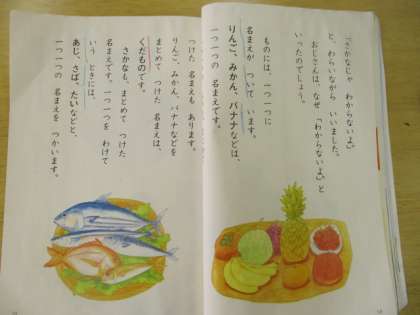 「さかなじゃ わからないよ。」
と、わらいながら いいました。
おじさんは、なぜ 「わからないよ。」と
いったのでしょう。
ものには、一つ一つに
名まえが ついて います。
りんご、みかん、バナナなどは、
一つ一つの 名まえです。
つけた 名まえも あります。
りんご、みかん、バナナなどを
まとめて つけた 名まえは、
くだものです。
さかなも、まとめて つけた
名まえです。一つ一つを わけて
いう ときには、
あじ、さば、たいなどと、
一つ一つの 名まえを つかいます。